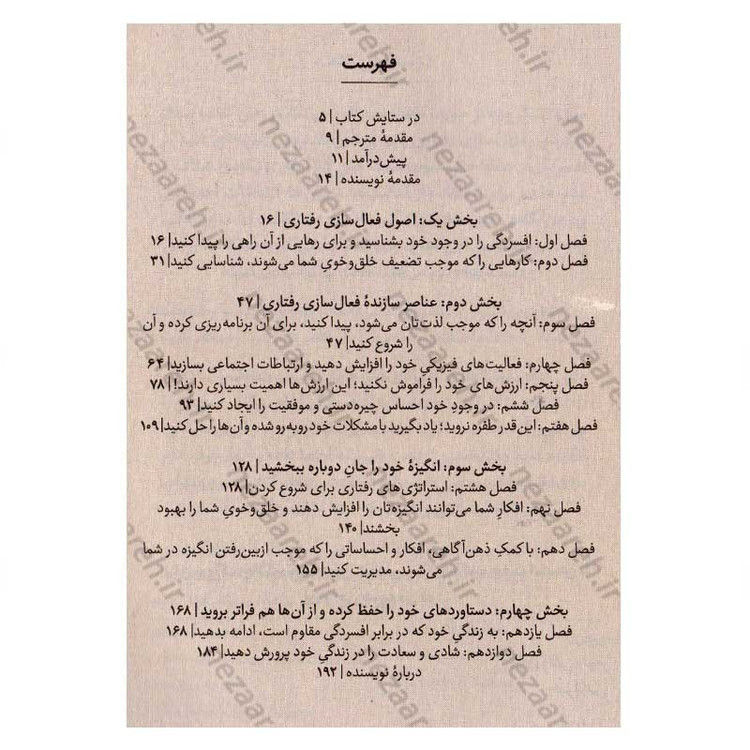 فهرست
در ستایش کتاب | ۵
مقدمهٔ مترجم | ۹
پیش‌درآمد | ۱۱
مقدمهٔ نویسنده | ۱۴
بخش یک: اصول فعال‌سازی رفتاری | ۱۶
فصل اول: افسردگی را در وجود خود بشناسید و برای رهایی از آن راهی را پیدا کنید| ۱۶
فصل دوم: کارهایی را که موجب تضعیف خلق‌وخوی شما می‌شوند، شناسایی کنید| ۳۱
بخش دوم: عناصر سازندهٔ فعال‌سازی رفتاری | ۴۷
فصل سوم: آنچه را که موجب لذت‌تان می‌شود، پیدا کنید، برای آن برنامه‌ریزی کرده و آن
را شروع کنید| ۴۷
فصل چهارم: فعالیت‌های فیزیکیِ خود را افزایش دهید و ارتباطات اجتماعی بسازید| ۶۴
فصل پنجم: ارزش‌های خود را فراموش نکنید؛ این ارزش‌ها اهمیت بسیاری دارند! | ۷۸
فصل ششم: در وجودِ خود احساس چیره‌دستی و موفقیت را ایجاد کنید| ۹۳
فصل هفتم: این‌قدر طفره نروید؛ یاد بگیرید با مشکلات خود روبه‌رو شده و آن‌ها را حل کنید| ۱۰۹
بخش سوم: انگیزهٔ خود را جانِ دوباره ببخشید | ۱۲۸
فصل هشتم: استراتژی‌های رفتاری برای شروع کردن| ۱۲۸
فصل نهم: افکارِ شما می‌توانند انگیزه‌تان را افزایش دهند و خلق‌وخوی شما را بهبود
بخشند| ۱۴۰
فصل دهم: با کمکِ ذهن‌آگاهی، افکار و احساساتی را که موجب ازبین‌رفتن انگیزه در شما
می‌شوند، مدیریت کنید| ۱۵۵
بخش چهارم: دستاوردهای خود را حفظ کرده و از آن‌ها هم فراتر بروید | ۱۶۸
فصل یازدهم: به زندگیِ خود که در برابر افسردگی مقاوم است، ادامه بدهید| ۱۶۸
فصل دوازدهم: شادی و سعادت را در زندگیِ خود پرورش دهید| ۱۸۴
دربارهٔ نویسنده | ۱۹۲
nezaareh.ir